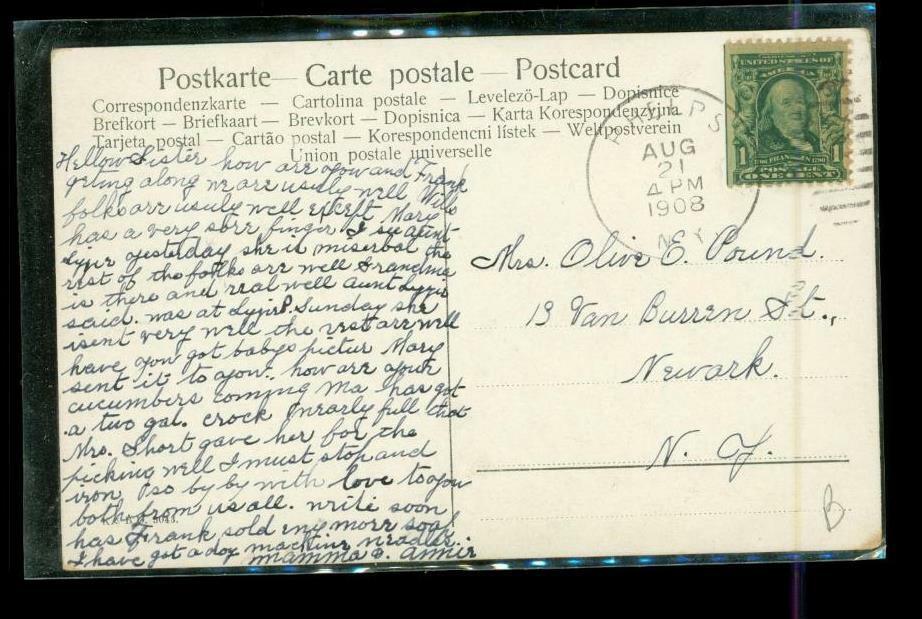 Postkarte — Carte postale — Postcard
Correspondenzkarte — Cartolina postale — Levelező-Lap — Dopisnice
Brefkort — Briefkaart — Brevkort — Dopisnica — Karta Korespondenzyjna
Tarjeta postal — Cartão postal — Korespondencni lístek — Weltpostverein
Union postale universelle
PHELPS
AUG
21
4 PM
1908
N.Y.
UNITED STATES OF
AMERICA
1 FRANKLIN 1
POSTAGE
ONE CENT
Hellow Sister how are you and Frank
geting along we are usuly well Wills
folks are usuly well except Mary
has a very sore finger I su aunt
yesterday she is miserbal the
rest of the folks are well Grandma
is there and real well aunt
said. was at Sunday she
isent very well the rest are well
have you got babys pictur Mary
sent it to you. how are your
cucumbers coming Ma has got
a two gal. crock nearly full that
Mrs. Short gave her for the
picking well I must stop and
iron so by by with love to you
both from us all. write soon
has Frank sold eny more soap
I have got a doz machine needles.
mamma &. annie
Mrs. Olive E. Pound.
13 Van Burren St.,
Newark.
N. Y.
B